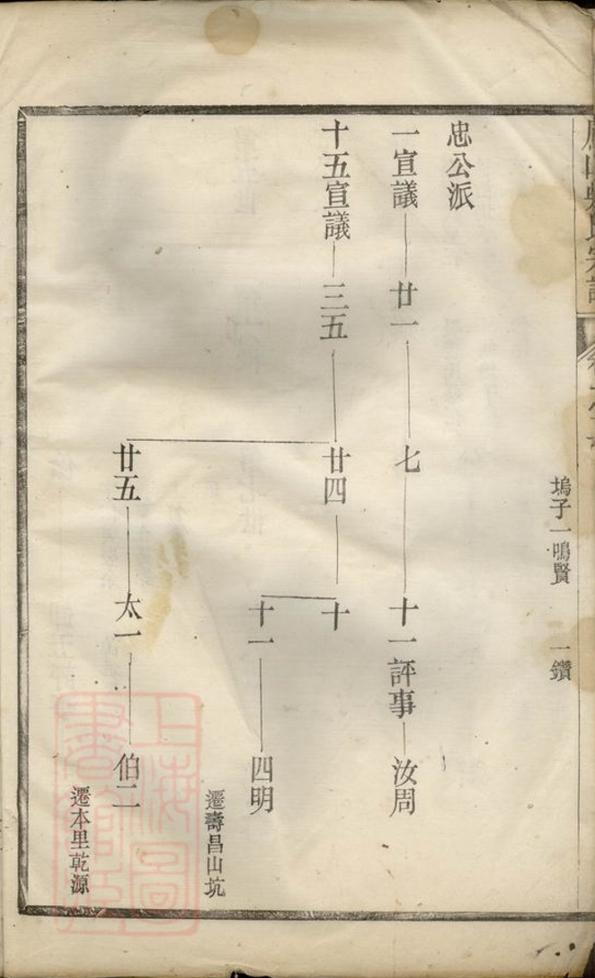 塢子一鳴賢　一鑽
忠公派
一宣議　廿一　七　十一評事　汝周
十五宣議　三五　廿四　十
十一　四明
遷壽昌山坑
廿五　太一　伯二
遷本里乾源
上海圖書館藏